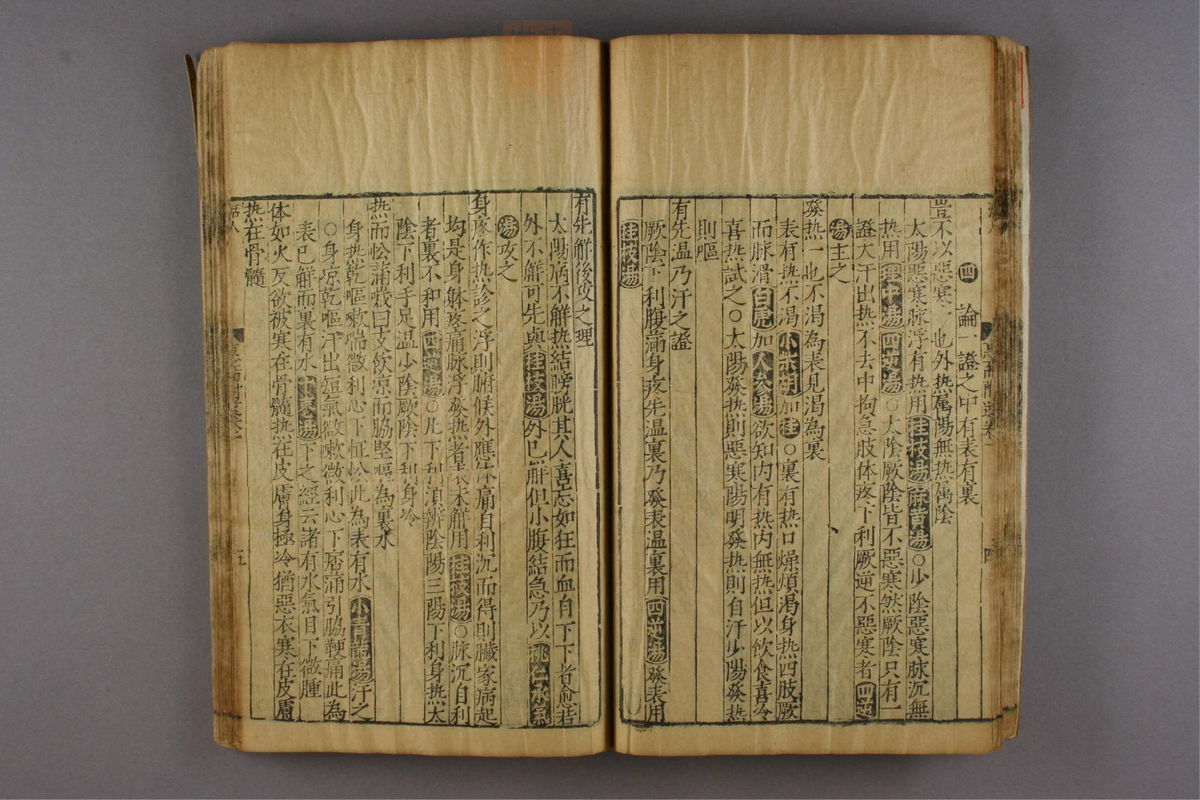 ㊃ 論一證之中有表有裏
豈不以惡寒一也外热属陽無热属陰
太陽惡寒脉浮有热用桂枝湯麻黄湯○少陰惡寒脉沉無
热用理中湯四逆湯○太陰厥陰皆不惡寒然厥陰只有一
證大汗出热不去中拘急肢体疼下利厥逆不惡寒者四逆
湯主之
發热一也不渴為表見渴為裏
表有热不渴小柴胡加桂○裏有热口燥煩渴身热四肢厥
而脉滑白虎加人参湯欲知内有热内無热但以飲食喜冷
喜热試之○太陽發热則惡寒陽明發热則自汗少陽發热
則嘔
有先温乃汗之證
厥陰下利腹滿身疼先温裏乃發表温裏用四逆湯發表用
桂枝湯
有先觧後攻之理
太陽病不觧热結膀胱其人喜忘如狂而血自下下者愈若
外不觧可先與桂枝湯外已觧但小腹結急乃以桃仁承氣
湯攻之
身疼作热診之浮則腑候外應体痛自利沉而得則臓家病起
均是身躰疼痛脉浮發热者表未觧用桂枝湯○脉沉自利
者裏不和用四逆湯○凡下利須辨陰陽三陽下利身热太
陰下利手足温少陰厥陰下利身冷
热而忪滿嗽曰支飲凉而脇堅嘔為裏水
身热乾嘔嗽喘微利心下怔忪此為表有水小青龍湯汗之
○身凉乾嘔汗出短氣微嗽微利心下痞痛引脇鞕痛此為
表已觧而裏有水十棗湯下之經云諸有水氣目下微腫
体如火反欲被寒在骨髓热在皮膚身極冷猶惡衣寒在皮膚
热在骨髓
五